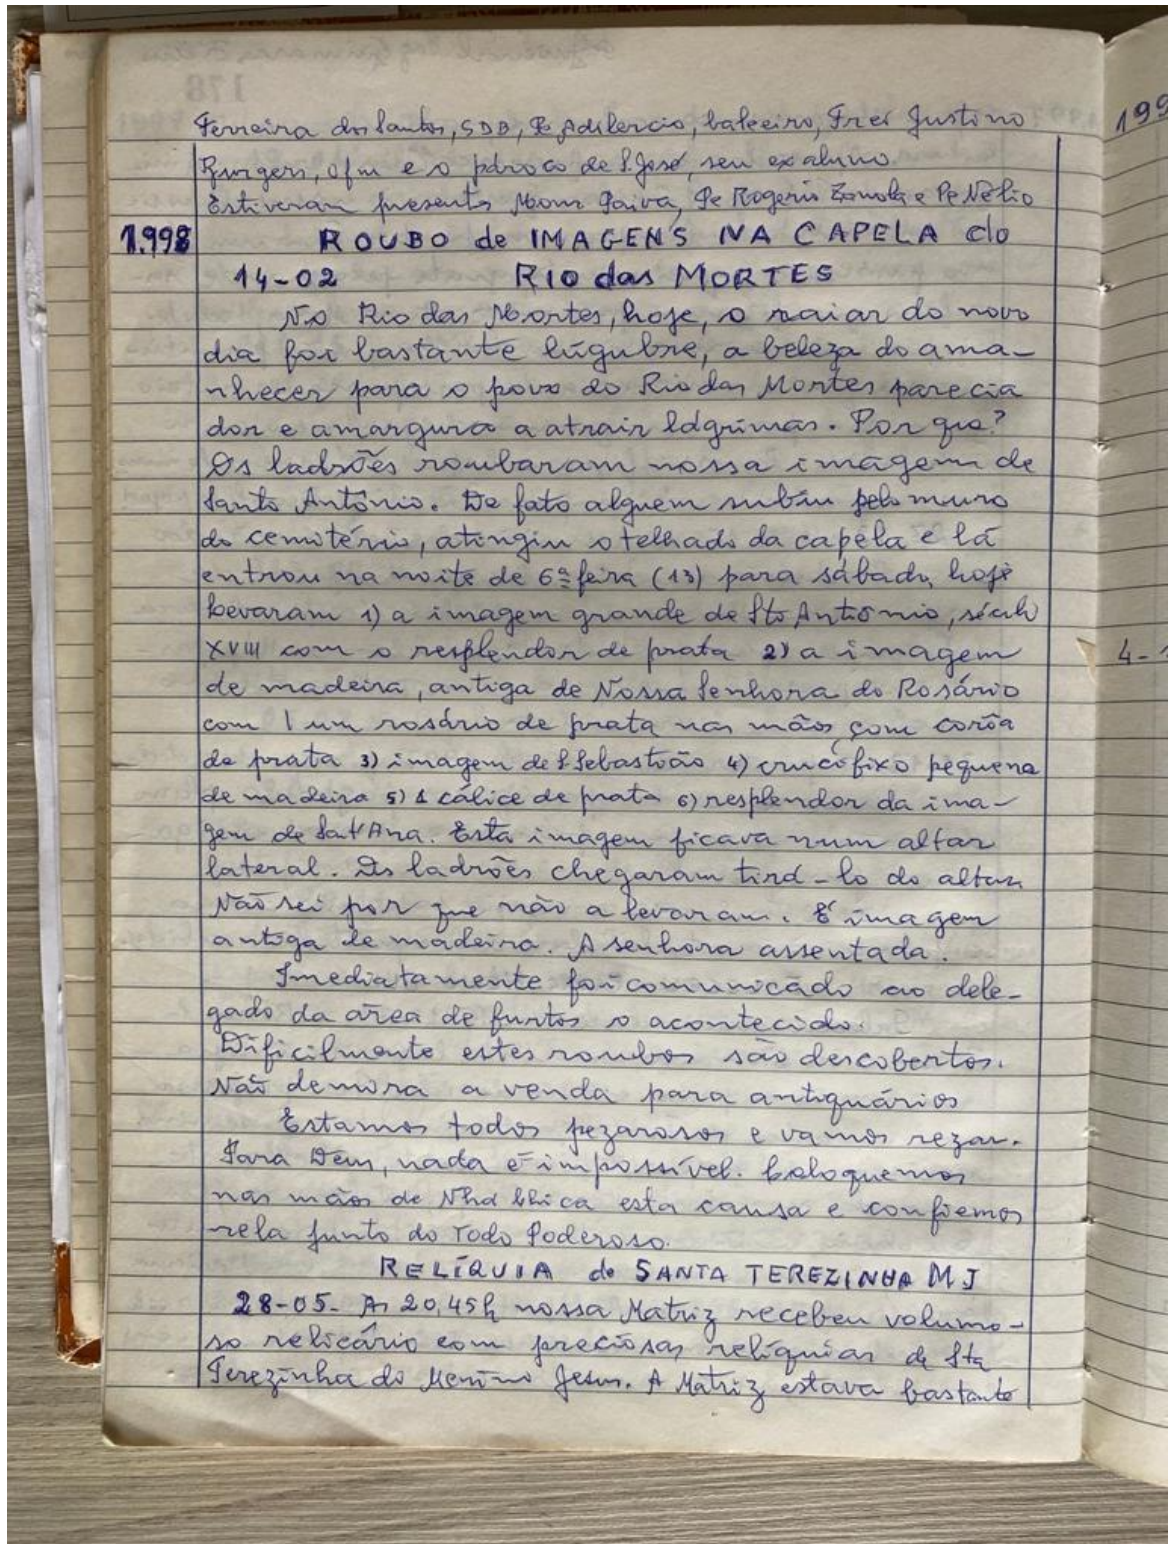 178
Ferreira dos Santos, SDB, Pe Adilercio, Frei Justino
Burgers, ofm e o pároco de S. José, seu ex aluno.
Estiveram presentes Mons Paiva, Pe Rogerio e Pe Nélio
199
1.998 ROUBO de IMAGENS NA CAPELA do
14-02 RIO das MORTES
No Rio das Mortes, hoje, o raiar do novo
dia foi bastante lúgubre, a beleza do ama-
nhecer para o povo do Rio das Mortes parecia
dor e amargura a atrair lágrimas. Por que?
Os ladrões roubaram nossa imagem de
Santo Antônio. De fato alguem subiu pelo muro
do cemitério, atingiu o telhado da capela e lá
entrou na noite de 6ª feira (13) para sábado, hoje
Levaram 1) a imagem grande de Sto Antônio, século
XVIII com o resplendor de prata 2) a imagem
de madeira, antiga de Nossa Senhora do Rosário
com 1 um rosário de prata nas mãos com corôa
de prata 3) imagem de S Sebastião 4) crucifixo pequeno
de madeira 5) 1 cálice de prata 6) resplendor da ima-
gem de Sant'Ana. Esta imagem ficava num altar
lateral. Os ladrões chegaram tirá-lo do altar.
Não sei por que não a levaram. É imagem
antiga de madeira. A senhora assentada.
Imediatamente foi comunicado ao dele-
gado da área de furtos o acontecido.
Dificilmente estes roubos são descobertos.
Não demora a venda para antiquários
Estamos todos pezarosos e vamos rezar.
Para Deus, nada é impossível. Coloquemos
nas mãos de Nhá Chica esta causa e confiemos
nela junto do Todo Poderoso.
RELÍQUIA de SANTA TEREZINHA M J
28-05- As 20,45h nossa Matriz recebeu volumo-
so relicário com preciosas relíquias de Sta
Terezinha do Menino Jesus. A Matriz estava bastante
4-